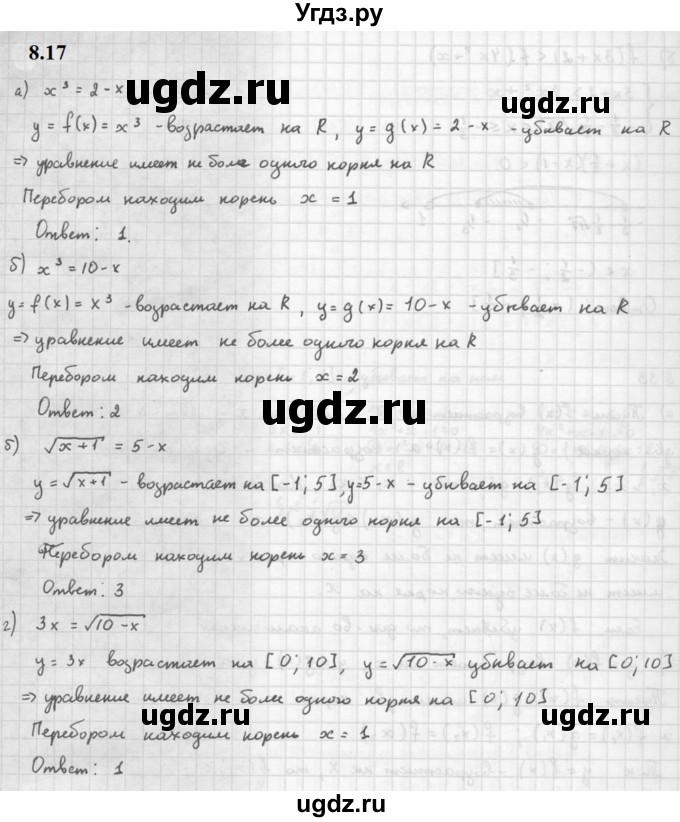 Угдз.ру
8.17
а) x³ = 2 - x
y = f(x) = x³ - возрастает на R, y = g(x) = 2 - x - убивает на R
=> уравнение имеет не более одного корня на R
Перебором находим корень x = 1
Ответ: 1.
б) x³ = 10 - x
y = f(x) = x³ - возрастает на R, y = g(x) = 10 - x - убивает на R
=> уравнение имеет не более одного корня на R
Перебором находим корень x = 2
Ответ: 2
б) √(x+1) = 5 - x
y = √(x+1) - возрастает на [-1; 5], y = 5 - x - убивает на [-1; 5]
=> уравнение имеет не более одного корня на [-1; 5]
Перебором находим корень x = 3
Ответ: 3
г) 3x = √(10-x)
y = 3x возрастает на [0; 10], y = √(10-x) убивает на [0; 10]
=> уравнение имеет не более одного корня на [0; 10]
Перебором находим корень x = 1
Ответ: 1
ugdz.ru
ugdz.ru
ugdz.ru
ugdz.ru
ugdz.ru
ugdz.ru